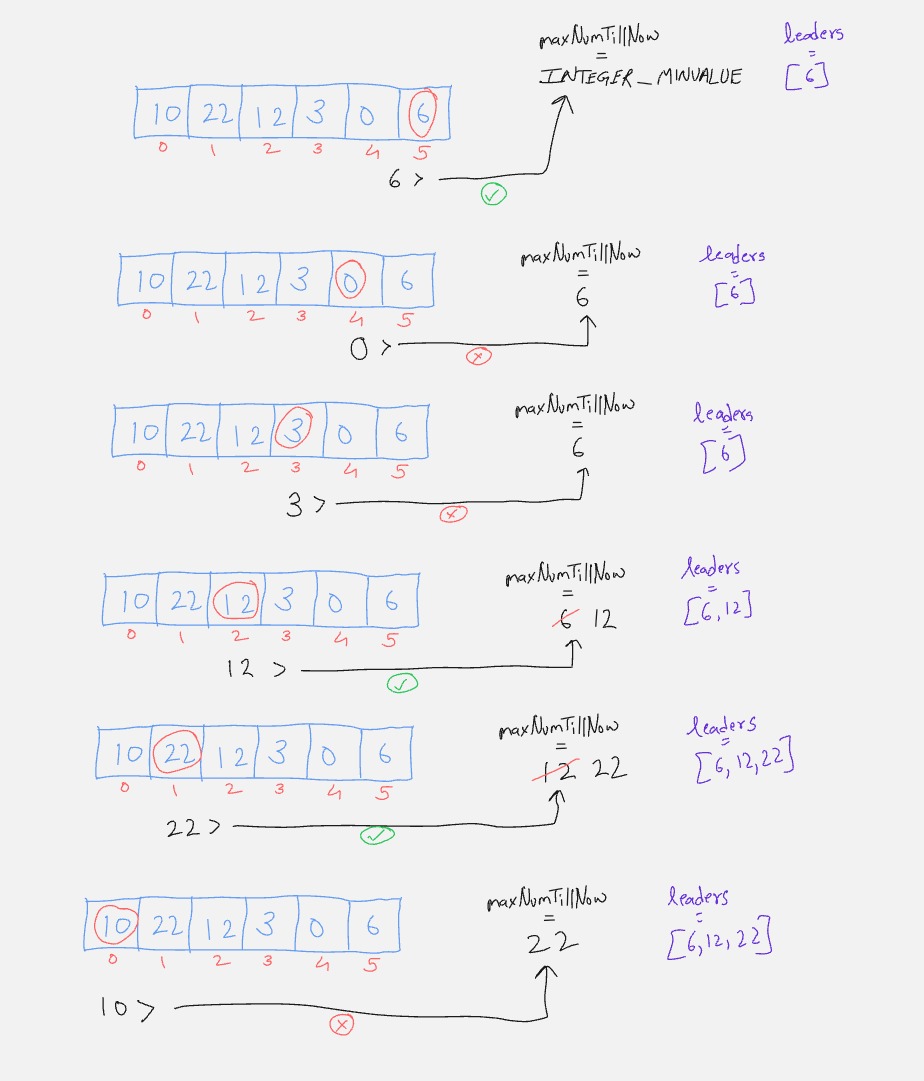 maxNumTillNow
=
INTEGER_MINVALUE
leaders
=
[6]
10 22 12 3 0 6
0 1 2 3 4 5
6 >
maxNumTillNow
=
6
leaders
=
[6]
10 22 12 3 0 6
0 1 2 3 4 5
0 >
maxNumTillNow
=
6
leaders
=
[6]
10 22 12 3 0 6
0 1 2 3 4 5
3 >
maxNumTillNow
=
6 12
leaders
=
[6,12]
10 22 12 3 0 6
0 1 2 3 4 5
12 >
maxNumTillNow
=
12 22
leaders
=
[6,12,22]
10 22 12 3 0 6
0 1 2 3 4 5
22 >
maxNumTillNow
=
22
leaders
=
[6,12,22]
10 22 12 3 0 6
0 1 2 3 4 5
10 >